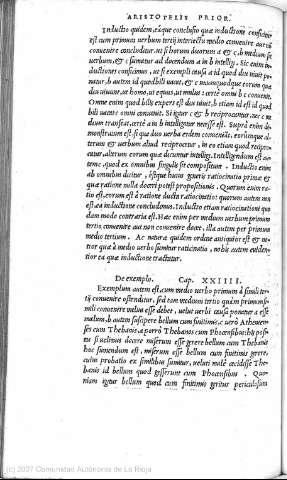 ARISTOTELIS PRIOR.
Inductio quidem, eáque conclusio quæ inductione conficitur
est cum primum uerbum tertij interiectu medio conuenire
conuenire concluditur. ut si horum duorum a & c, b medium sit
uerbum, & c sumatur ad docendum a in b intelligi. Sic enim in-
ductiones conficimus, ut si exempli causa a id quod diu uiuit po-
natur, b autem id quod bili uacet, & c unumquodque eorum quæ
diu uiuunt, ut homo, ut equus, ut mulus: certè omni b c conuenit.
Omne enim quod bilis expers est diu uiuit, b etiam id est id quod
bili uacet omni conuenit. Si igitur c & b reciprocentur, nec c me
dium transeat, certè a in b intelligatur necesse est. Suprà enim de-
monstratum est, si qua duo uerba eidem conueniant, eorumque al-
terum & uerbum aliud reciprocentur, in eo etiam quod recipro-
catur, alterum eorum quæ dicuntur intelligi. Intelligendum est au-
tem c, quod ex omnibus singulis sit compositum. Inductio enim
ab omnibus dicitur, éstque huius generis ratiocinatio primæ &
qua ratione nulla doceri potest propositionis. Quorum enim ra-
tio est, eorum est à ratione ducta ratiocinatio: quorum autem non
est ea inductione concluduntur. Inductio etiam ratiocinationi quo
dam modo contraria est. Hæc enim per medium uerbum primum
tertio conuenire aut non conuenire docet, illa autem per primum
medio tertium. Ac natura quidem ordine antiquior est & no-
tior quæ à medio uerbo sumitur ratiocinatio, nobis autem euiden-
tior ea quæ inductione tractatur.
De exemplo. Cap. XXIIII.
Exemplum autem est, cum medio uerbo primum à simili ter-
tij conuenire ostenditur, sed tam medium tertio quàm primum si-
mili conuenire notius esse debet, uelut uerbi causa ponatur a esse
malum, b autem suscipere bellum cum finitimis, c uerò Athenien-
ses cum Thebanos, d uerò Thebanos cum Phocensibus
si uelimus docere miserum esse gerere bellum cum Thebanis
hoc sumendum est, miserum esse bellum cum finitimis gerere,
cuius probatio ex similibus sumitur, ueluti malè cecidisse The-
banis id bellum quod gesserunt cum Phocensibus. Quo-
niam igitur bellum quod cum finitimis geritur periculosum
(c) 2007 Comunidad Autónoma de La Rioja